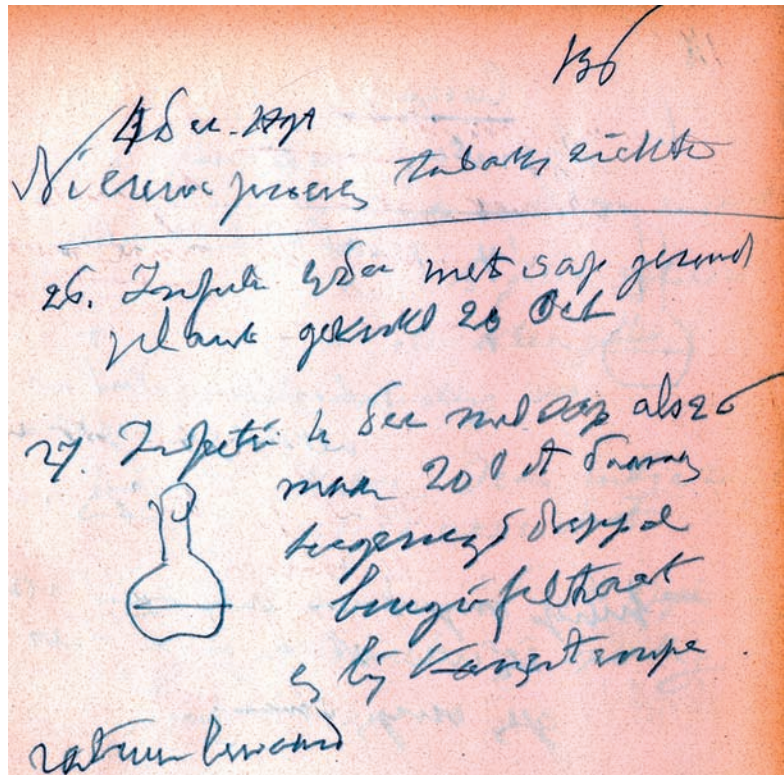 136
4 Dec. 1897
Nieuwe proeven tabaksziekte
26. Infectie 4 Dec met sap gezond
plant gekookt 20 Oct
27. Infectie 4 Dec met sap als 26
maar 20 Oct daaraan
toegevoegd druppel
bougiefiltraat
en bij Kamertempe
ratuur bewaard